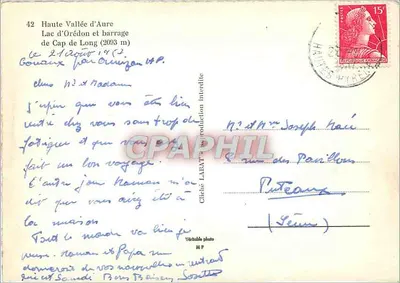 42 Haute Vallée d'Aure
Lac d'Orédon et barrage
de Cap de Long (2093 m)
le 21 Août
Gouaux par Arreau H.P.
chers Mr et Madame
J'espère que vous êtes bien
rentré chez vous sans trop de
fatigue et que vous avez
fait un bon voyage.
L'autre jour Maman m'a
dit que vous avez été à
la maison
Tout le monde va bien je
Maman et Papa
de vos nouvelles en rentrant
Bons Baisers Josette
Cliché LABAT reproduction interdite
Véritable photo
M P
15F
HAUTES PYRENEES
Mr et Mme Joseph
rue des Pavillons
Puteaux
(Seine)
CPAPHIL